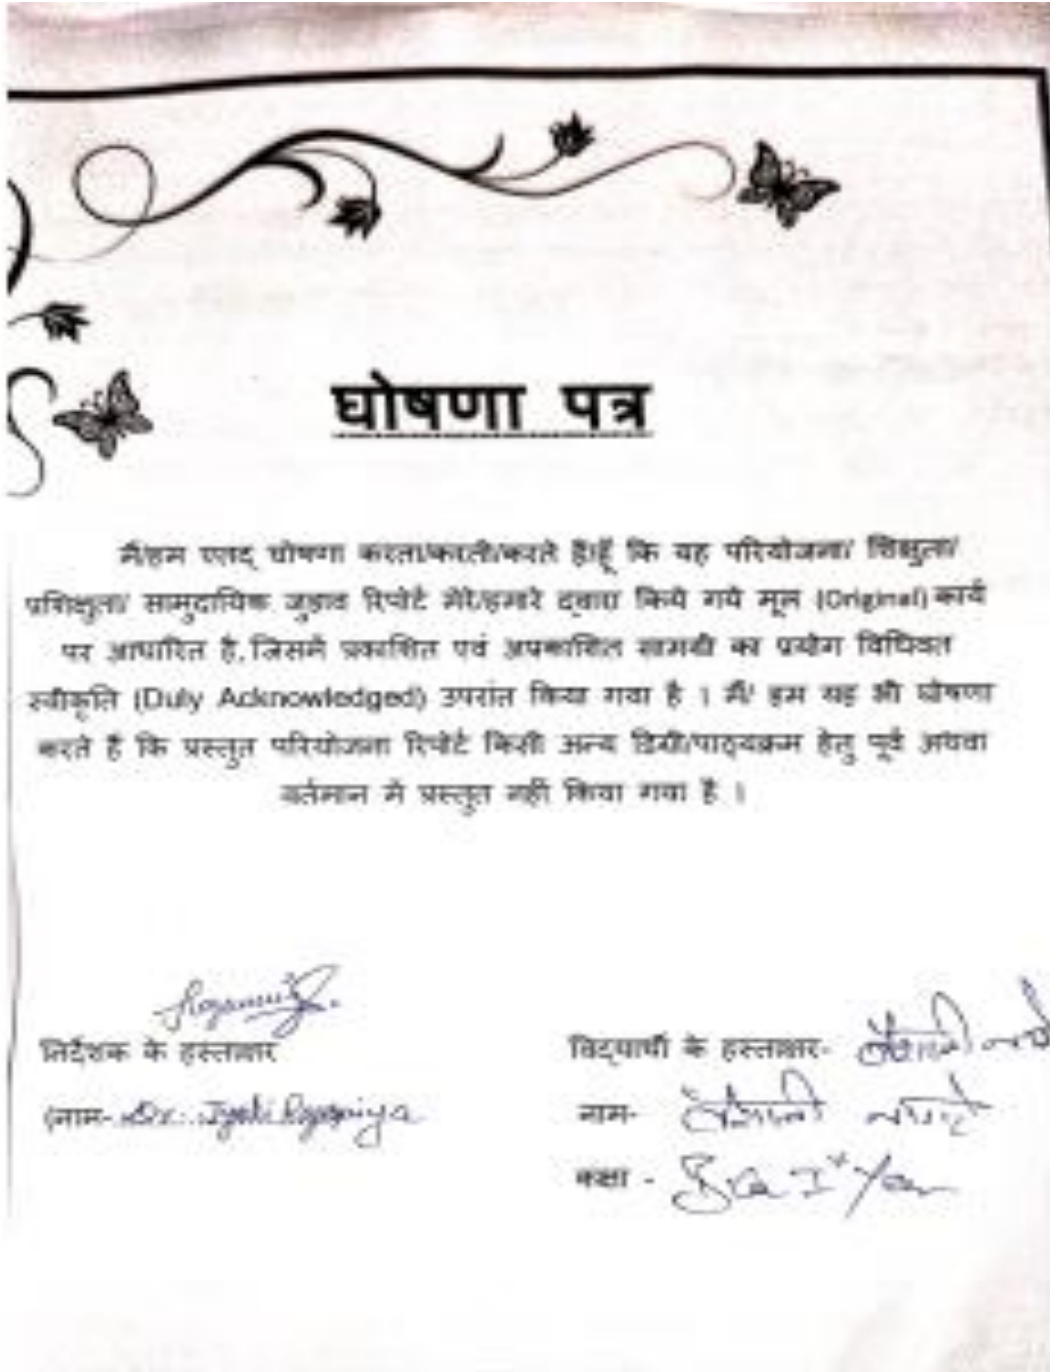 घोषणा पत्र
मैं/हम एतद् घोषणा करता/करती/करते हैं/हूँ कि यह परियोजना/ शिक्षुता/
प्रशिक्षुता/ सामुदायिक जुड़ाव रिपोर्ट मेरे/हमारे द्वारा किये गये मूल (Original) कार्य
पर आधारित है, जिसमें प्रकाशित एवं अप्रकाशित सामग्री का प्रयोग विधिवत
स्वीकृति (Duly Acknowledged) उपरांत किया गया है । मैं/ हम यह भी घोषणा
करते हैं कि प्रस्तुत परियोजना रिपोर्ट किसी अन्य डिग्री/पाठ्यक्रम हेतु पूर्व अथवा
वर्तमान में प्रस्तुत नहीं किया गया है ।
निर्देशक के हस्ताक्षर
(नाम- Dr. Jyoti
विद्यार्थी के हस्ताक्षर-
नाम- वैशाली
कक्षा - Year